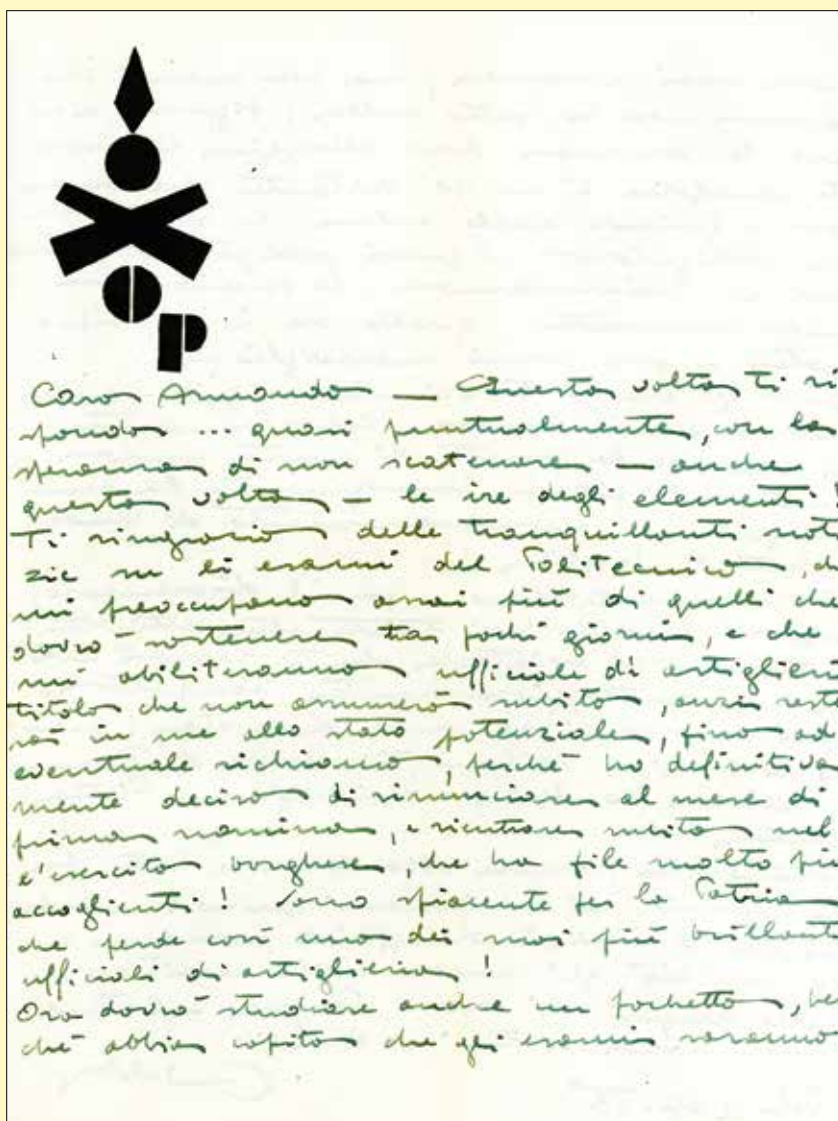 Caro Armando — Questa volta ti ri
spondo ... quasi puntualmente, con la
speranza di non scatenare — anche
questa volta — le ire degli elementi!
Ti ringrazio delle tranquillanti noti
zie su gli esami del Politecnico, ch
mi preoccupano assai più di quelli che
dovrò sostenere tra pochi giorni, e che
mi abiliteranno ufficiale di artiglieri
titolo che non assumerò subito, anzi rest
rà in me allo stato potenziale, fino ad
eventuale richiamo, perché ho definitiva
mente deciso di rinunciare al mese di
prima nomina, e rientrare subito nel
l'esercito borghese, che ha file molto più
accoglienti! Sono spiacente per la Patria
che perde così uno dei suoi più brillanti
ufficiali di artiglieria!
Ora dovrò studiare anche un pochetto, be
ché abbia capito che gli esami saranno